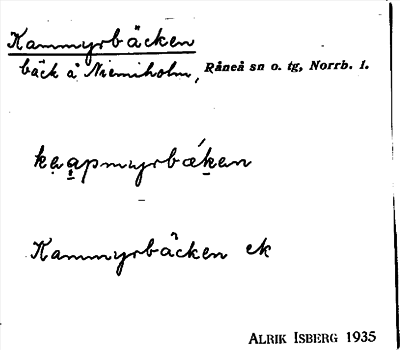 Kammyrbäcken
bäck å Niemiholm, Råneå sn o. tg, Norrb. l.
Kammyrbäcken ek
ALRIK ISBERG 1935